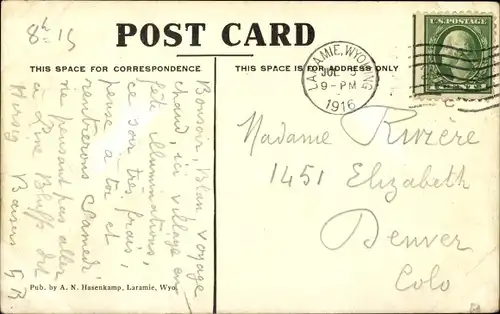 8h-15
POST CARD
THIS SPACE FOR CORRESPONDENCE
THIS SPACE IS FOR ADDRESS ONLY
U.S. POSTAGE
LARAMIE, WYOMING
JUL 3
9-PM
1916
Bonsoir, Bon voyage
chaud, ici village en
fête illuminations,
ce soir très frais,
pense à toi et
rentrerons Samedi
ne pensant pas aller
à Pine Bluffs
Baisers G.R.
Madame Rivière
1451 Elizabeth
Denver
Colo
Pub. by A. N. Hasenkamp, Laramie, Wyo.